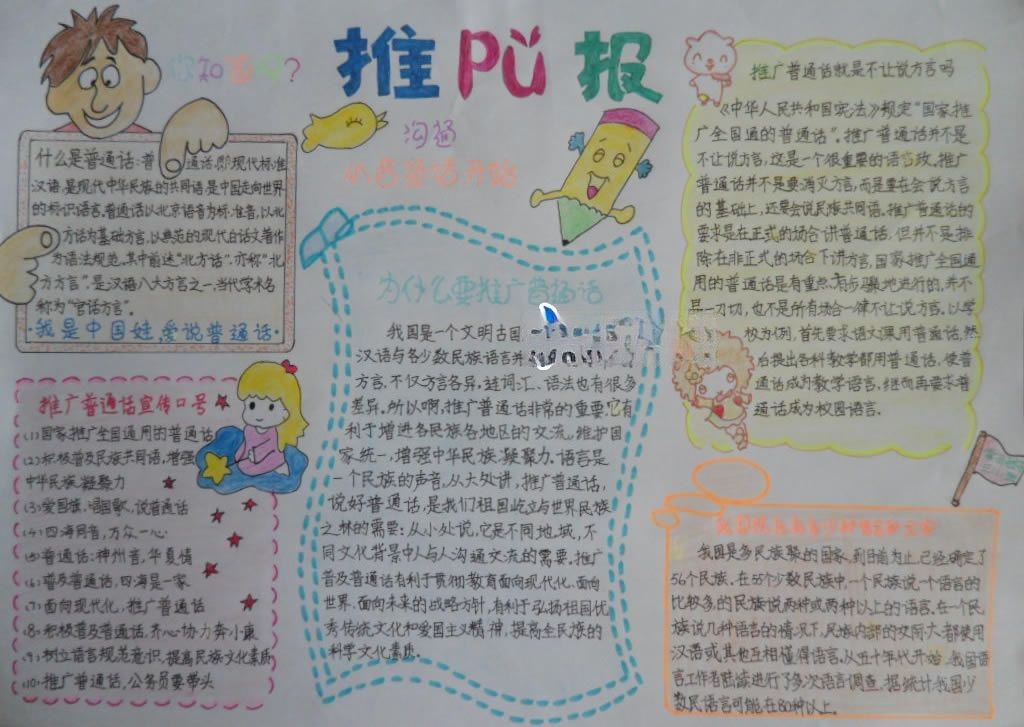 你知道吗?
推PǓ报
沟通
从普通话开始
什么是普通话:普通话即现代标准
汉语,是现代中华民族的共同语,是中国走向世界
的标识语言,普通话以北京语音为标准音,以北
方话为基础方言,以典范的现代白话文著作
为语法规范。其中前述"北方话",亦称"北
方方言",是汉语八大方言之一,当代学术名
称为"官话方言"。
·我是中国娃,爱说普通话·
推广普通话宣传口号
(1)国家推广全国通用的普通话
(2)积极普及民族共同语,增强
中华民族凝聚力
(3)爱国旗,唱国歌,说普通话
(4)四海同音,万众一心
(5)普通话:神州音,华夏情
(6)普及普通话,四海是一家
(7)面向现代化,推广普通话
(8)积极普及普通话,齐心协力奔小康
(9)树立语言规范意识,提高民族文化素质
(10)推广普通话,公务员要带头
为什么要推广普通话
我国是一个文明古国
汉语与各少数民族语言并
方言,不仅方言各异,连词汇、语法也有很多
差异。所以啊,推广普通话非常的重要,它有
利于增进各民族各地区的交流,维护国
家统一,增强中华民族凝聚力。语言是
一个民族的声音,从大处讲,推广普通话,
说好普通话,是我们祖国屹立与世界民族
之林的需要;从小处说,它是不同地域,不
同文化背景中人与人沟通交流的需要。推广
普及普通话有利于贯彻教育面向现代化,面向
世界,面向未来的战略方针,有利于弘扬祖国优
秀传统文化和爱国主义精神,提高全民族的
科学文化素质。
推广普通话就是不让说方言吗
《中华人民共和国宪法》规定"国家推
广全国通的普通话"。推广普通话并不是
不让说方言,这是一个很重要的语言政。推广
普通话并不是要消灭方言,而是要在会说方言
的基础上,还要会说民族共同语。推广普通话的
要求是在正式的场合讲普通话,但并不是排
除在非正式的场合下讲方言,国家推广全国通
用的普通话是有重点,有步骤地进行的,并不
是一刀切,也不是所有场合一律不让说方言。以学
校为例,首先要求语文课用普通话,然
后提出各种教学都用普通话,使普
通话成为教学语言,继而再要求普
通话成为校园语言。
我国是多民族聚的国家,到目前为止,已经确定了
56个民族。在55个少数民族中,一个民族说一个语言的
比较多的民族说两种或两种以上的语言。在一个民
族说几种语言的情况下,民族内部的交际大都使用
汉语或其他互相懂得语言。从五十年代开始,我国语
言工作者陆续进行了多次语言调查,据统计,我国少
数民语言可能在80种以上。